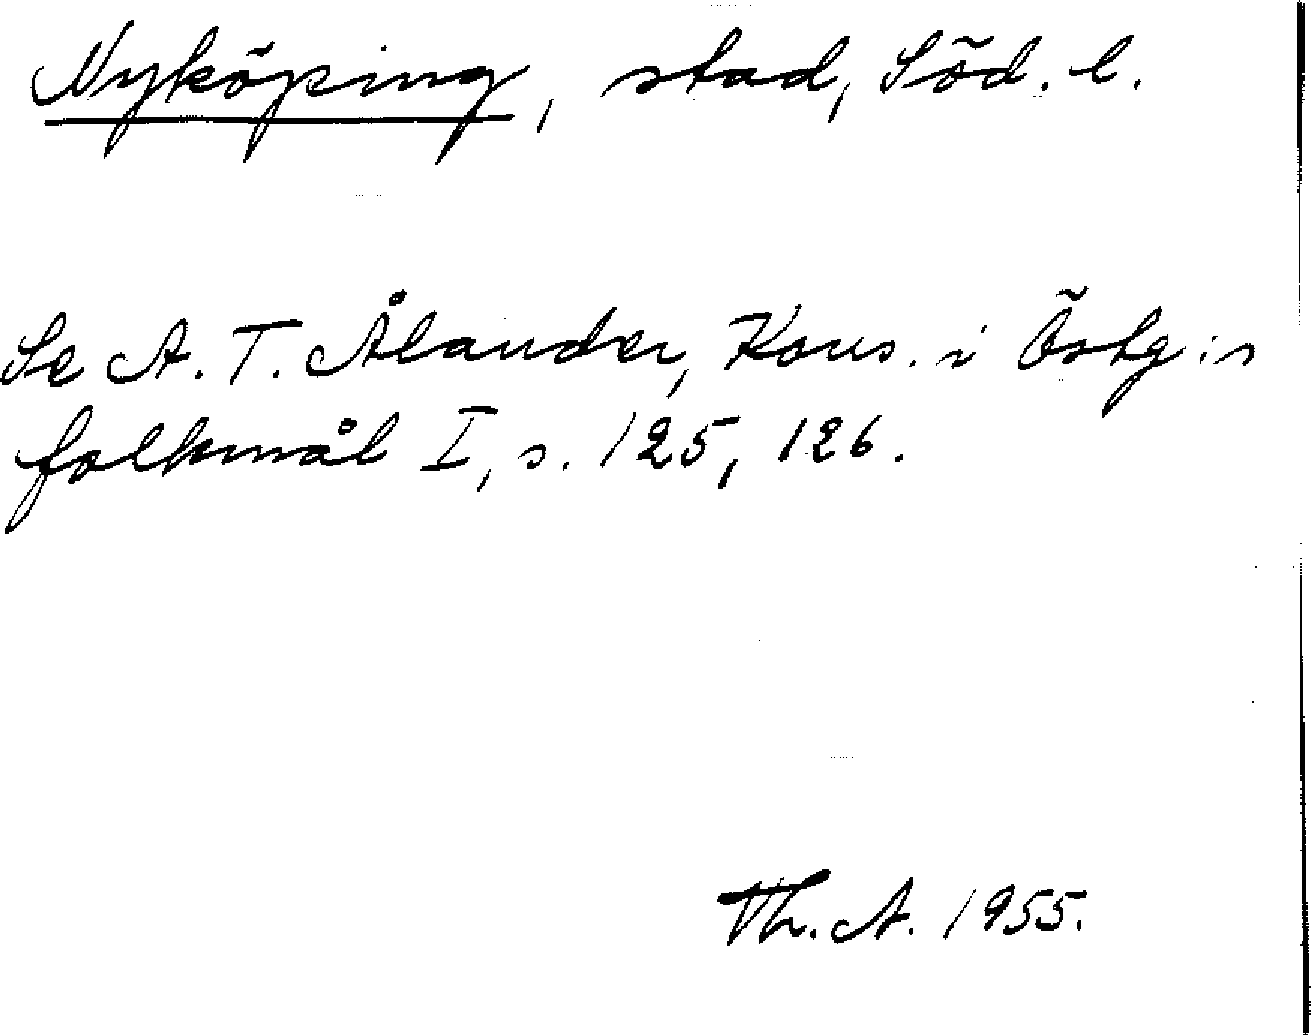 Nyköping, stad, Söd. l.
Se A. T. Ålander, Kons. i Östg:s
folkmål I, s. 125, 126.
Th. A. 1955.